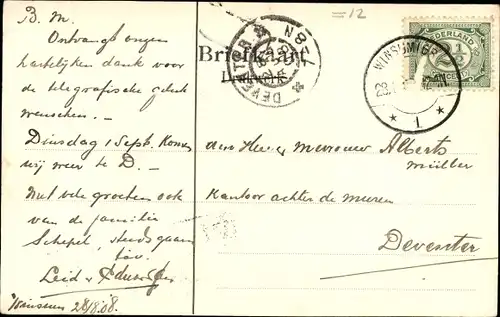 B. M.
Ontvangt onzen
hartelijken dank voor
de telegrafische geluk
wenschen. -
Dinsdag 1 Sept. komen
wij weer te D. -
Met vele groeten ook
van de familie
Schepel, steeds gaarne
Winsum 28/8.08.
=12
Briefkaart
DEVENTER
NEDERLAND
2½
CENT
WINSUM (GR:)
1
Den Heer en Mevrouw Alberts
Müller
Kantoor achter de muren
Deventer